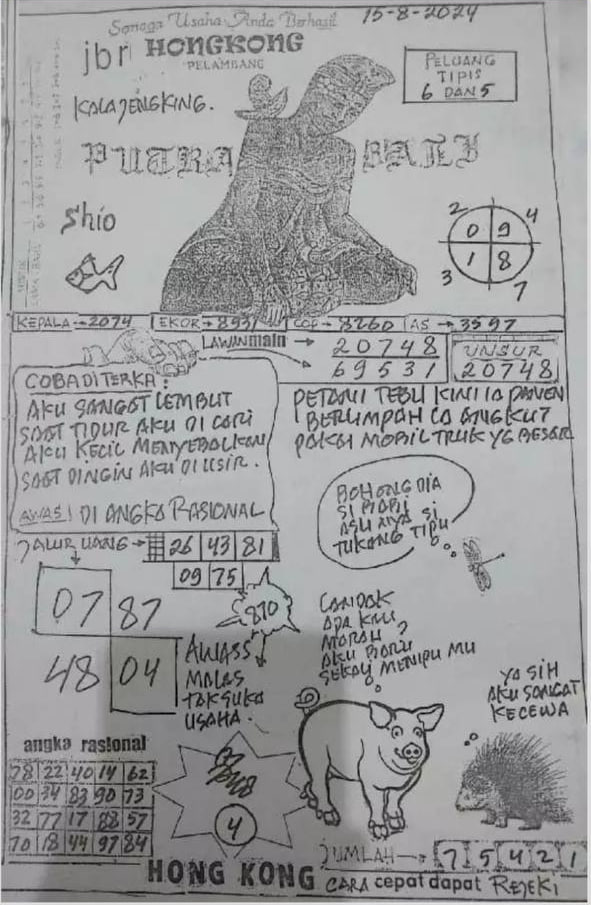 Semoga Usaha Anda Berhasil
15-8-2024
jbr HONGKONG
PELAMBANG
PELUANG
TIPIS
6 DAN 5
KALAJENGKING.
PUTRA BALI
Shio
2 4
0 9
1 8
3 7
KEPALA→2074 EKOR→8931 COP→8260 AS→3597
LAWAN main → 20748
69531
UNSUR
20748
COBA DI TERKA:
AKU SANGAT LEMBUT
SAAT TIDUR AKU DI CARI
AKU KECIL MENYEBALKAN
SAAT DINGIN AKU DI USIR.
AWAS! DI ANGKA RASIONAL
PETANI TEBU KINI IA PANEN
BERLIMPAH IA ANGKUT
PAKAI MOBIL TRUK YG BESAR
BOHONG DIA
SI BABI
ASU NYA SI
TUKANG TIPU
JALUR UANG→ 26 43 81
09 75
07 87
48 04
870
AWASS
MALAS
TAK SUKA
USAHA.
LANDAK
APA KAU
MARAH?
AKU BARU
SEKALI MENIPU MU
YA SIH
AKU SANGAT
KECEWA
angka rasional
78 22 40 14 62
00 34 83 90 73
32 77 17 88 57
70 18 44 97 84
4
JUMLAH→ 7 5 4 2 1
HONG KONG CARA cepat dapat REJEKI